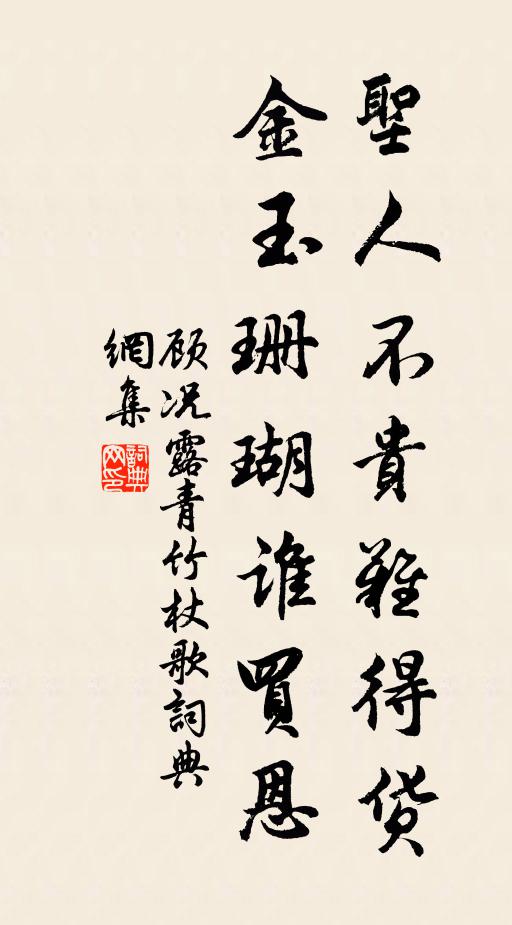 聖人不貴難得货
金玉珊瑚谁買恩
顾况露青竹杖歌詞典
網集
詞典网印